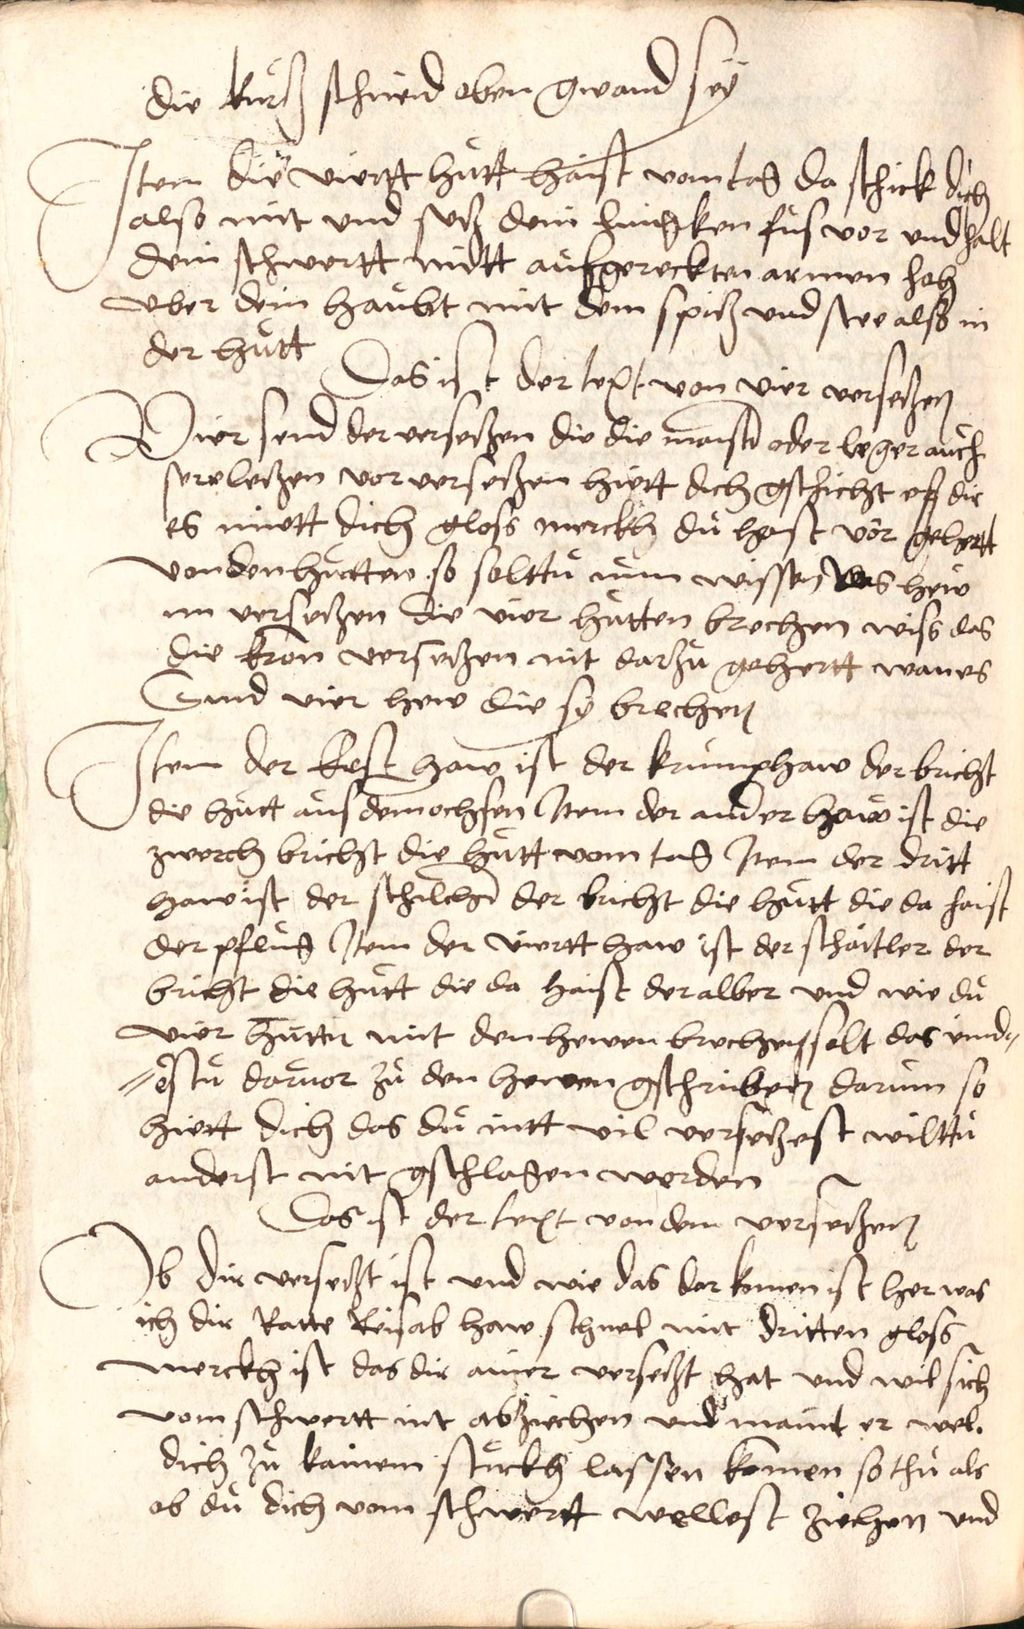 die kurtz schneid oben gwand sey
Item die viertt hutt haist vom tag da schick dich
also mit und setz dein lincken fus vor und halt
dein schwertt mitt aufgereckten armen hoh
vber dein haubt mit dem spitz und stee also in
der hutt
Das ist der text von vier versetzen
Vier send der versetzen die die maist oder leger auch
sere letzen vor versetzen hiett dich gschicht es dir
es miett dich gloss merckh du hast vor gehertt
von den hutten so solttu nun wissen das hew
im versetzen die vier hutten brechen wiss das
die kron versetzen nit darzu gehertt wan es
Send vier hew die sy brechen
Item der Erst haw ist der krumphaw der bricht
die hutt aus dem ochsen Item der ander haw ist die
zwerch bricht die hutt vom tag Item der dritt
haw ist der schilcher der bricht die hutt die da haist
der pflug Item der viertt haw ist der schaittler der
bricht die hutt die da haist der alber und wie du
vier hutten mit den hewen brechen solt das vind
estu darvor zu den hewen gschriben darum so
hiett dich das du nitt vil versetzest wilttu
anderst nit gschlagen werden
Das ist der text von dem versetzen
Ob dir versetzt ist und wie das dar komen ist her was
ich dir Ratte Reis ab haw schnel mit dritten gloss
merckh ist das dir ainer versetzt hat und wil sich
vom schwertt nit abziechen und maint er wel
dich zu kainem stuckh lassen komen so thu als
ob du dich vom schwertt wellest ziechen und